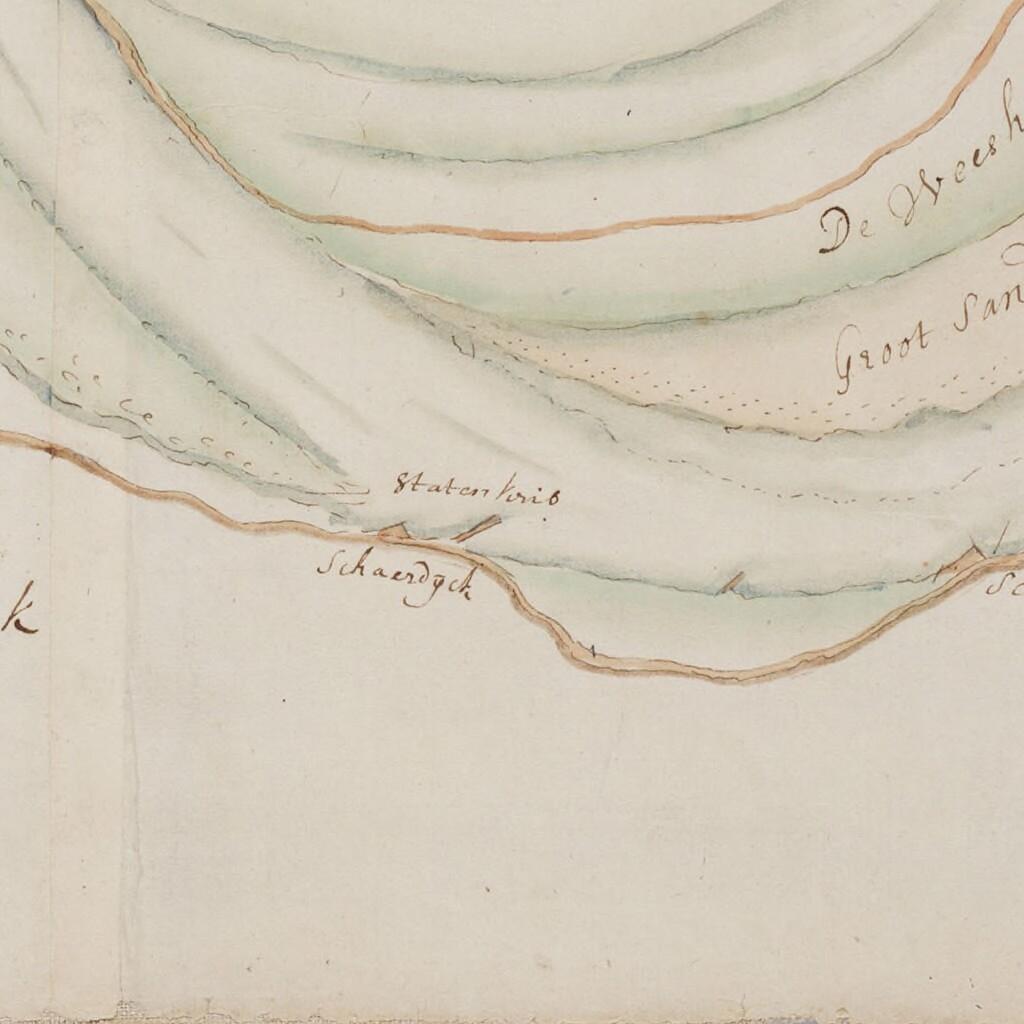 De Weesh
Groot San
Staten krib
Schaerdyck
k
Sc